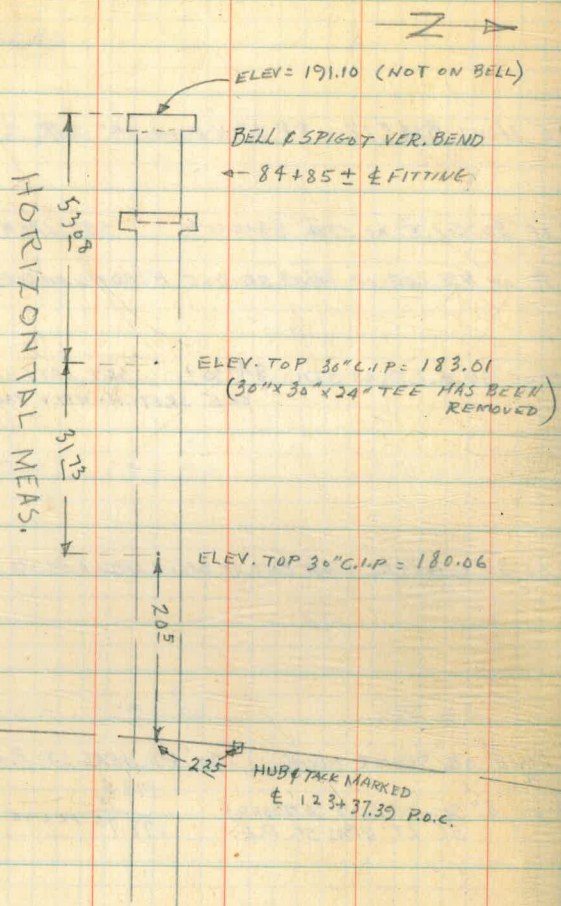 ELEV = 191.10 (NOT ON BELL)
BELL & SPIGOT VER. BEND
84+85 ± ℄ FITTING
53.08
HORIZONTAL MEAS.
ELEV. TOP 30" C.I.P. = 183.01
(30" X 30" X 24" TEE HAS BEEN
REMOVED)
31.73
ELEV. TOP 30" C.I.P = 180.06
20.5
2.35
HUB & TACK MARKED
℄ 123+37.39 P.O.C.